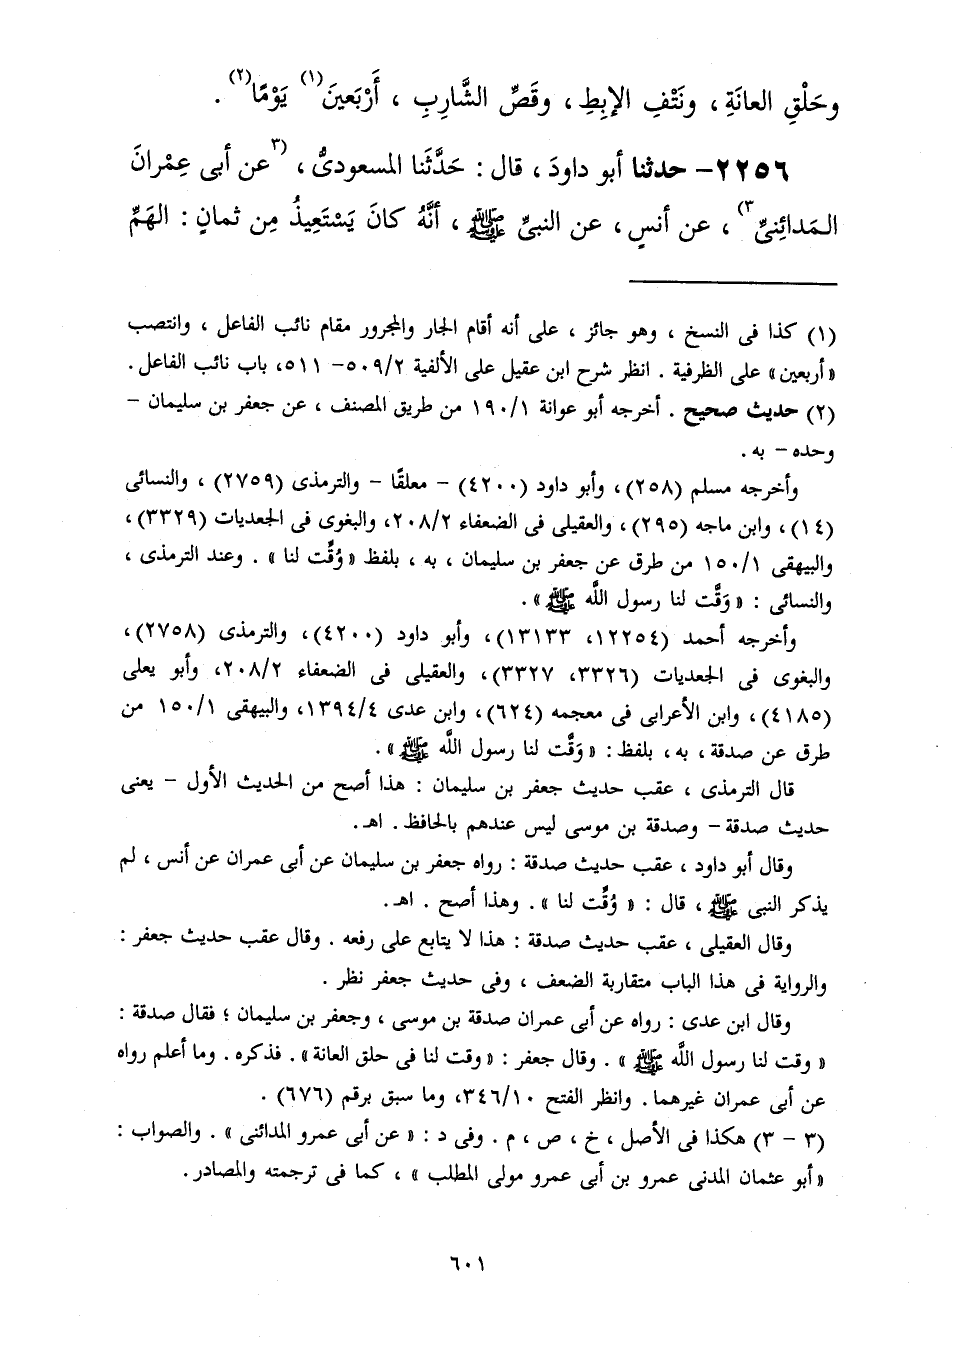 وحَلْقِ العانَةِ ، ونَتْفِ الإبِطِ ، وقَصِّ الشَّارِبِ ، أَرْبَعينَ(١) يَوْمًا(٢) .
٢٢٥٦– حدثنا أبو داودَ ، قال : حَدَّثَنا المسعودىُّ ، (٣عن أبى عِمْرانَ
المَدائِنىِّ٣) ، عن أنسٍ ، عن النبىِّ ﷺ ، أنَّهُ كانَ يَسْتَعِيذُ مِن ثمانٍ : الهَمِّ
(١) كذا فى النسخ ، وهو جائز ، على أنه أقام الجار والمجرور مقام نائب الفاعل ، وانتصب
«أربعين» على الظرفية . انظر شرح ابن عقيل على الألفية ٥٠٩/٢– ٥١١، باب نائب الفاعل .
(٢) حديث صحيح . أخرجه أبو عوانة ١٩٠/١ من طريق المصنف ، عن جعفر بن سليمان –
وحده – به .
وأخرجه مسلم (٢٥٨)، وأبو داود (٤٢٠٠) – معلقًا – والترمذى (٢٧٥٩) ، والنسائى
(١٤) ، وابن ماجه (٢٩٥)، والعقيلى فى الضعفاء ٢٠٨/٢، والبغوى فى الجعديات (٣٣٢٩)،
والبيهقى ١٥٠/١ من طرق عن جعفر بن سليمان ، به ، بلفظ « وُقِّت لنا » . وعند الترمذى ،
والنسائى : « وَقَّت لنا رسول اللَّه ﷺ » .
وأخرجه أحمد (١٢٢٥٤، ١٣١٣٣)، وأبو داود (٤٢٠٠)، والترمذى (٢٧٥٨)،
والبغوى فى الجعديات (٣٣٢٦، ٣٣٢٧)، والعقيلى فى الضعفاء ٢٠٨/٢، وأبو يعلى
(٤١٨٥) ، وابن الأعرابى فى معجمه (٦٢٤)، وابن عدى ١٣٩٤/٤، والبيهقى ١٥٠/١ من
طرق عن صدقة ، به ، بلفظ : « وَقَّت لنا رسول اللَّه ﷺ » .
قال الترمذى ، عقب حديث جعفر بن سليمان : هذا أصح من الحديث الأول – يعنى
حديث صدقة – وصدقة بن موسى ليس عندهم بالحافظ . اهـ .
وقال أبو داود ، عقب حديث صدقة : رواه جعفر بن سليمان عن أبى عمران عن أنس ، لم
يذكر النبى ﷺ ، قال : « وُقِّت لنا » . وهذا أصح . اهـ .
وقال العقيلى ، عقب حديث صدقة : هذا لا يتابع على رفعه . وقال عقب حديث جعفر :
والرواية فى هذا الباب متقاربة الضعف ، وفى حديث جعفر نظر .
وقال ابن عدى : رواه عن أبى عمران صدقة بن موسى ، وجعفر بن سليمان ؛ فقال صدقة :
« وقت لنا رسول اللَّه ﷺ » . وقال جعفر : « وقت لنا فى حلق العانة » . فذكره . وما أعلم رواه
عن أبى عمران غيرهما . وانظر الفتح ٣٤٦/١٠، وما سبق برقم (٦٧٦) .
(٣ – ٣) هكذا فى الأصل ، خ ، ص ، م . وفى د : « عن أبى عمرو المدائنى » . والصواب :
« أبو عثمان المدنى عمرو بن أبى عمرو مولى المطلب » ، كما فى ترجمته والمصادر .
٦٠١